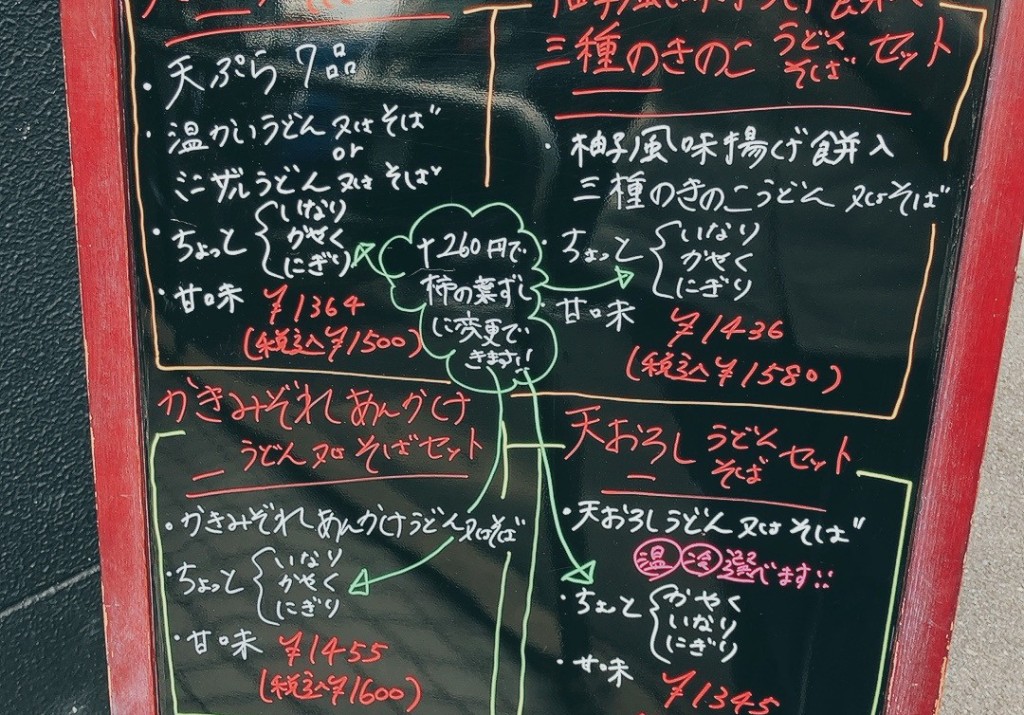 ・天ぷら 7品
・温かいうどん 又は そば
or
ミニザルうどん 又は そば
・ちょっと
いなり
かやく
にぎり
・甘味 ¥1364
(税込¥1500)
三種のきのこ うどん そば セット
・柚子風味揚げ餅入
三種のきのこうどん 又は そば
・ちょっと
いなり
かやく
にぎり
・甘味 ¥1436
(税込¥1580)
+260円で
柿の葉ずし
に変更で
きます!!
かきみぞれあんかけ
うどん 又は そばセット
・かきみぞれあんかけうどん 又は そば
・ちょっと
いなり
かやく
にぎり
・甘味 ¥1455
(税込¥1600)
天おろし うどん そば セット
・天おろしうどん 又は そば
温 冷 選べます!!
・ちょっと
かやく
いなり
にぎり
・甘味 ¥1345